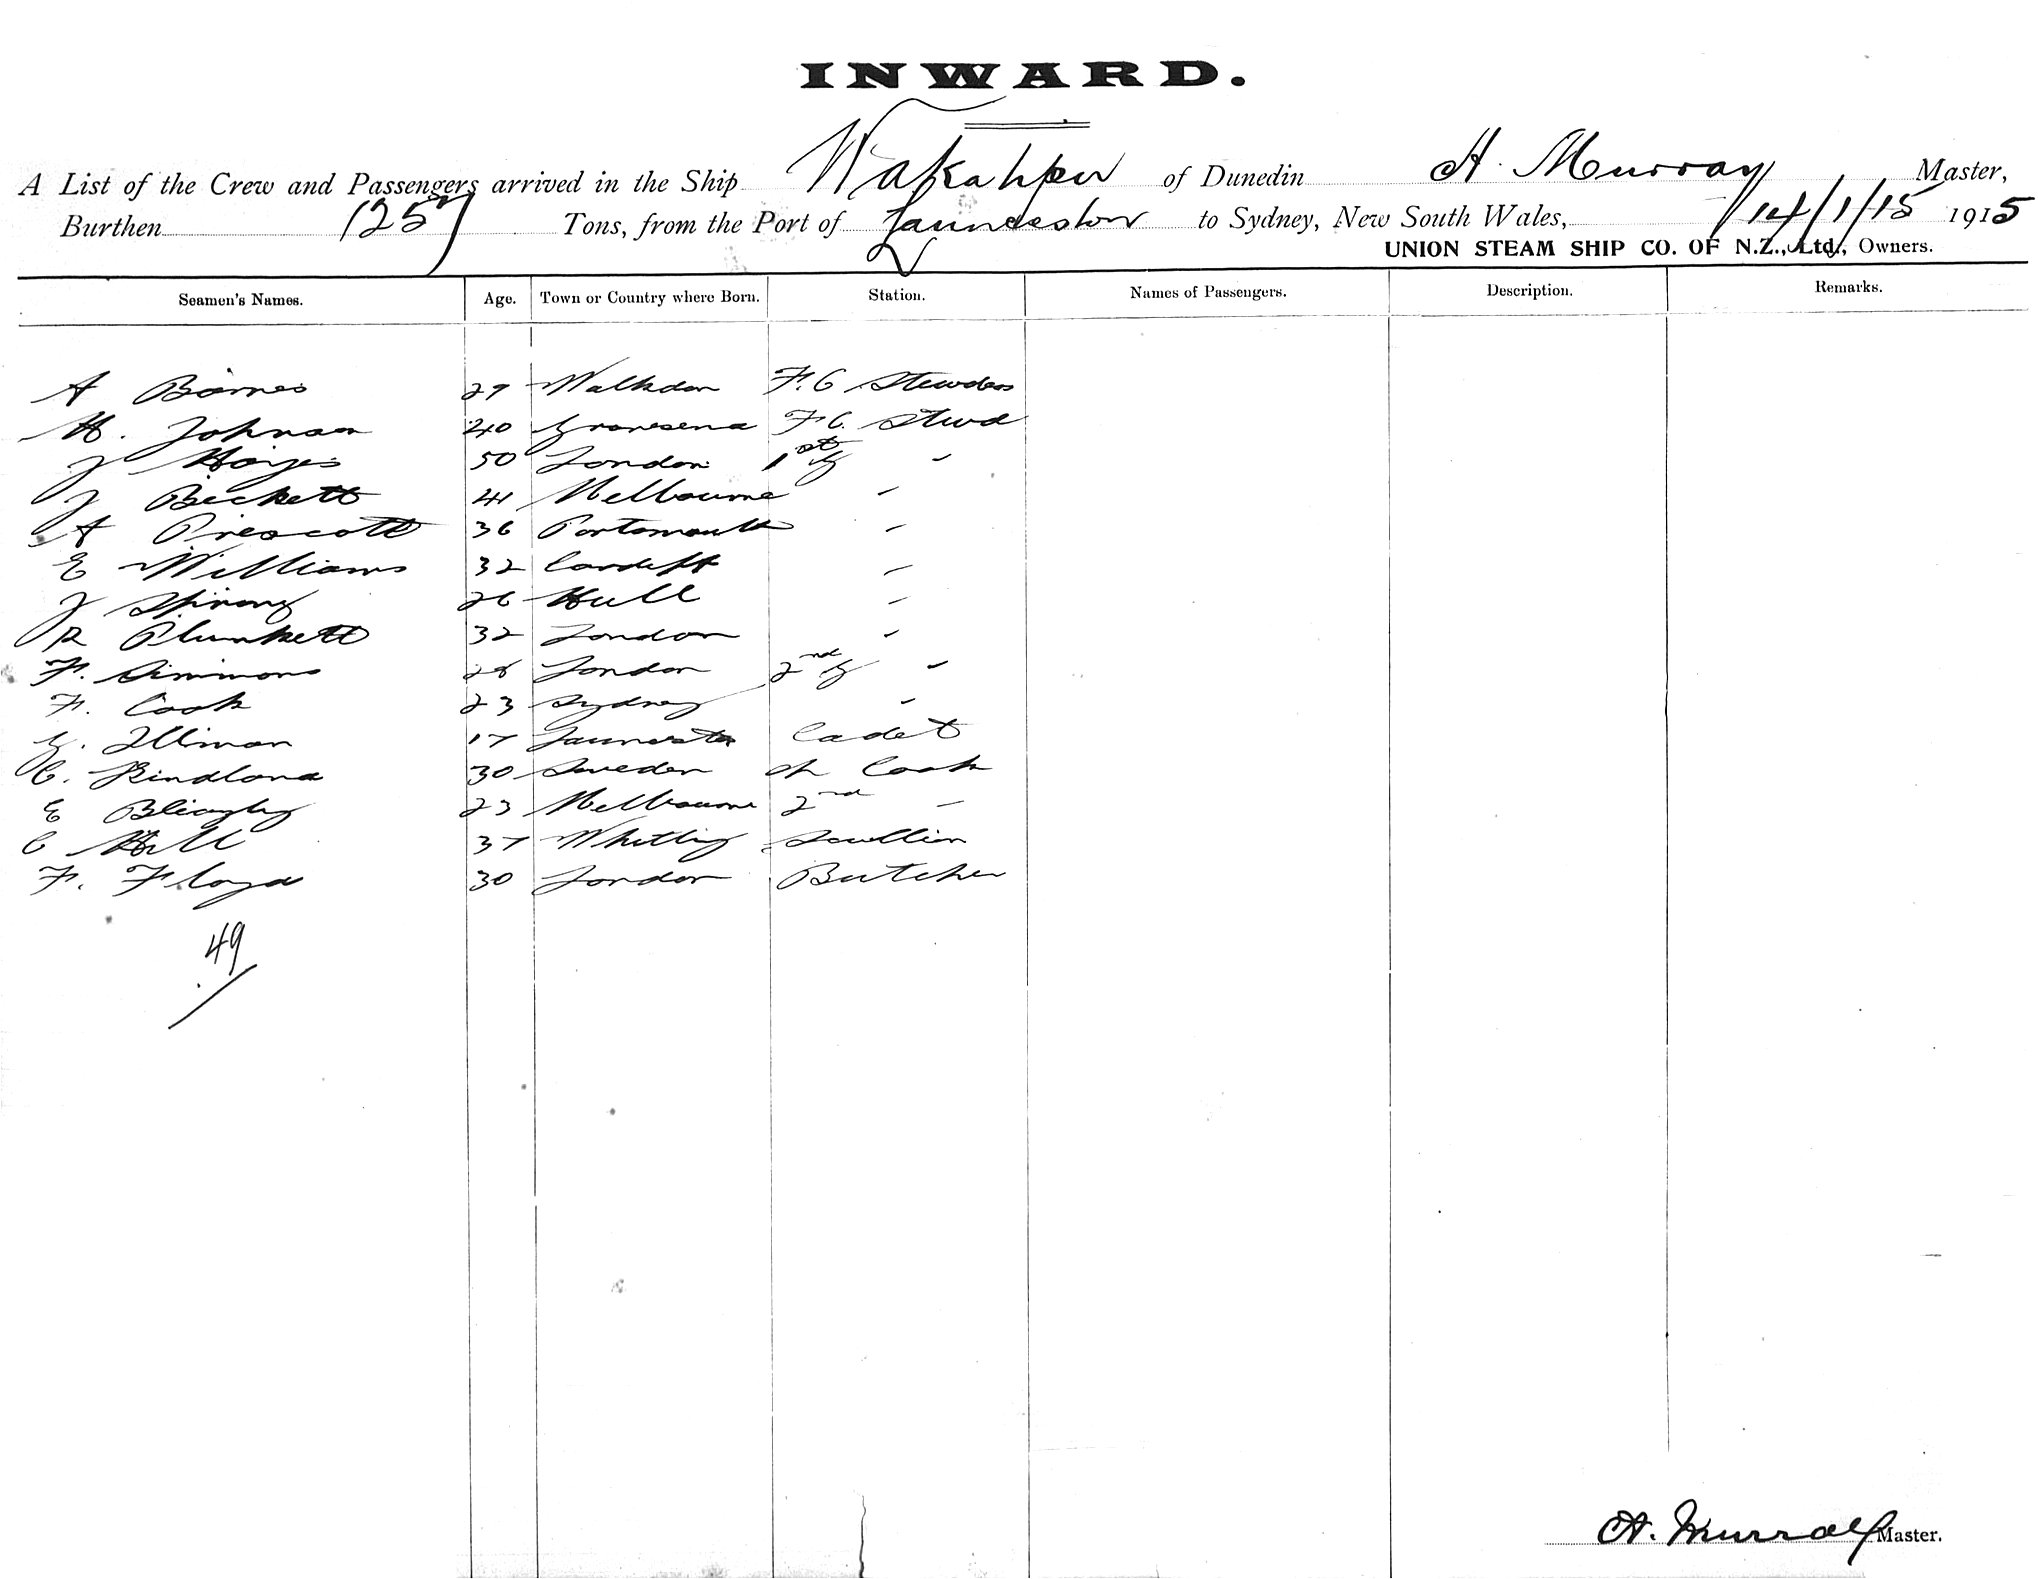 INWARD.
A List of the Crew and Passengers arrived in the Ship Wakatipu of Dunedin A. Murray Master,
Burthen 1257 Tons, from the Port of Launceston to Sydney, New South Wales, 14/1/15 1915
UNION STEAM SHIP CO. OF N.Z., Ltd., Owners.
Seamen's Names. Age. Town or Country where Born. Station. Names of Passengers. Description. Remarks.
A Barnes 29 F.C Stewdess
H. Johnson 40 Gravesend F C. Stwd
J Hayes 50 London 1st G "
J Beckett 41 Melbourne "
A Prescott 36 Portsmouth "
E Williams 32 Cardiff "
J 26 Hull "
R Plunkett 32 London "
F. Simmons 28 London 2nd G "
F. Cook 23 Sydney "
G. Illman 17 Launceston Cadet
C. 30 Sweden Ch Cook
E 23 Melbourne 2nd "
C Hill 37 Scullion
F. Floyd 30 London Butcher
49
A. Murray Master.